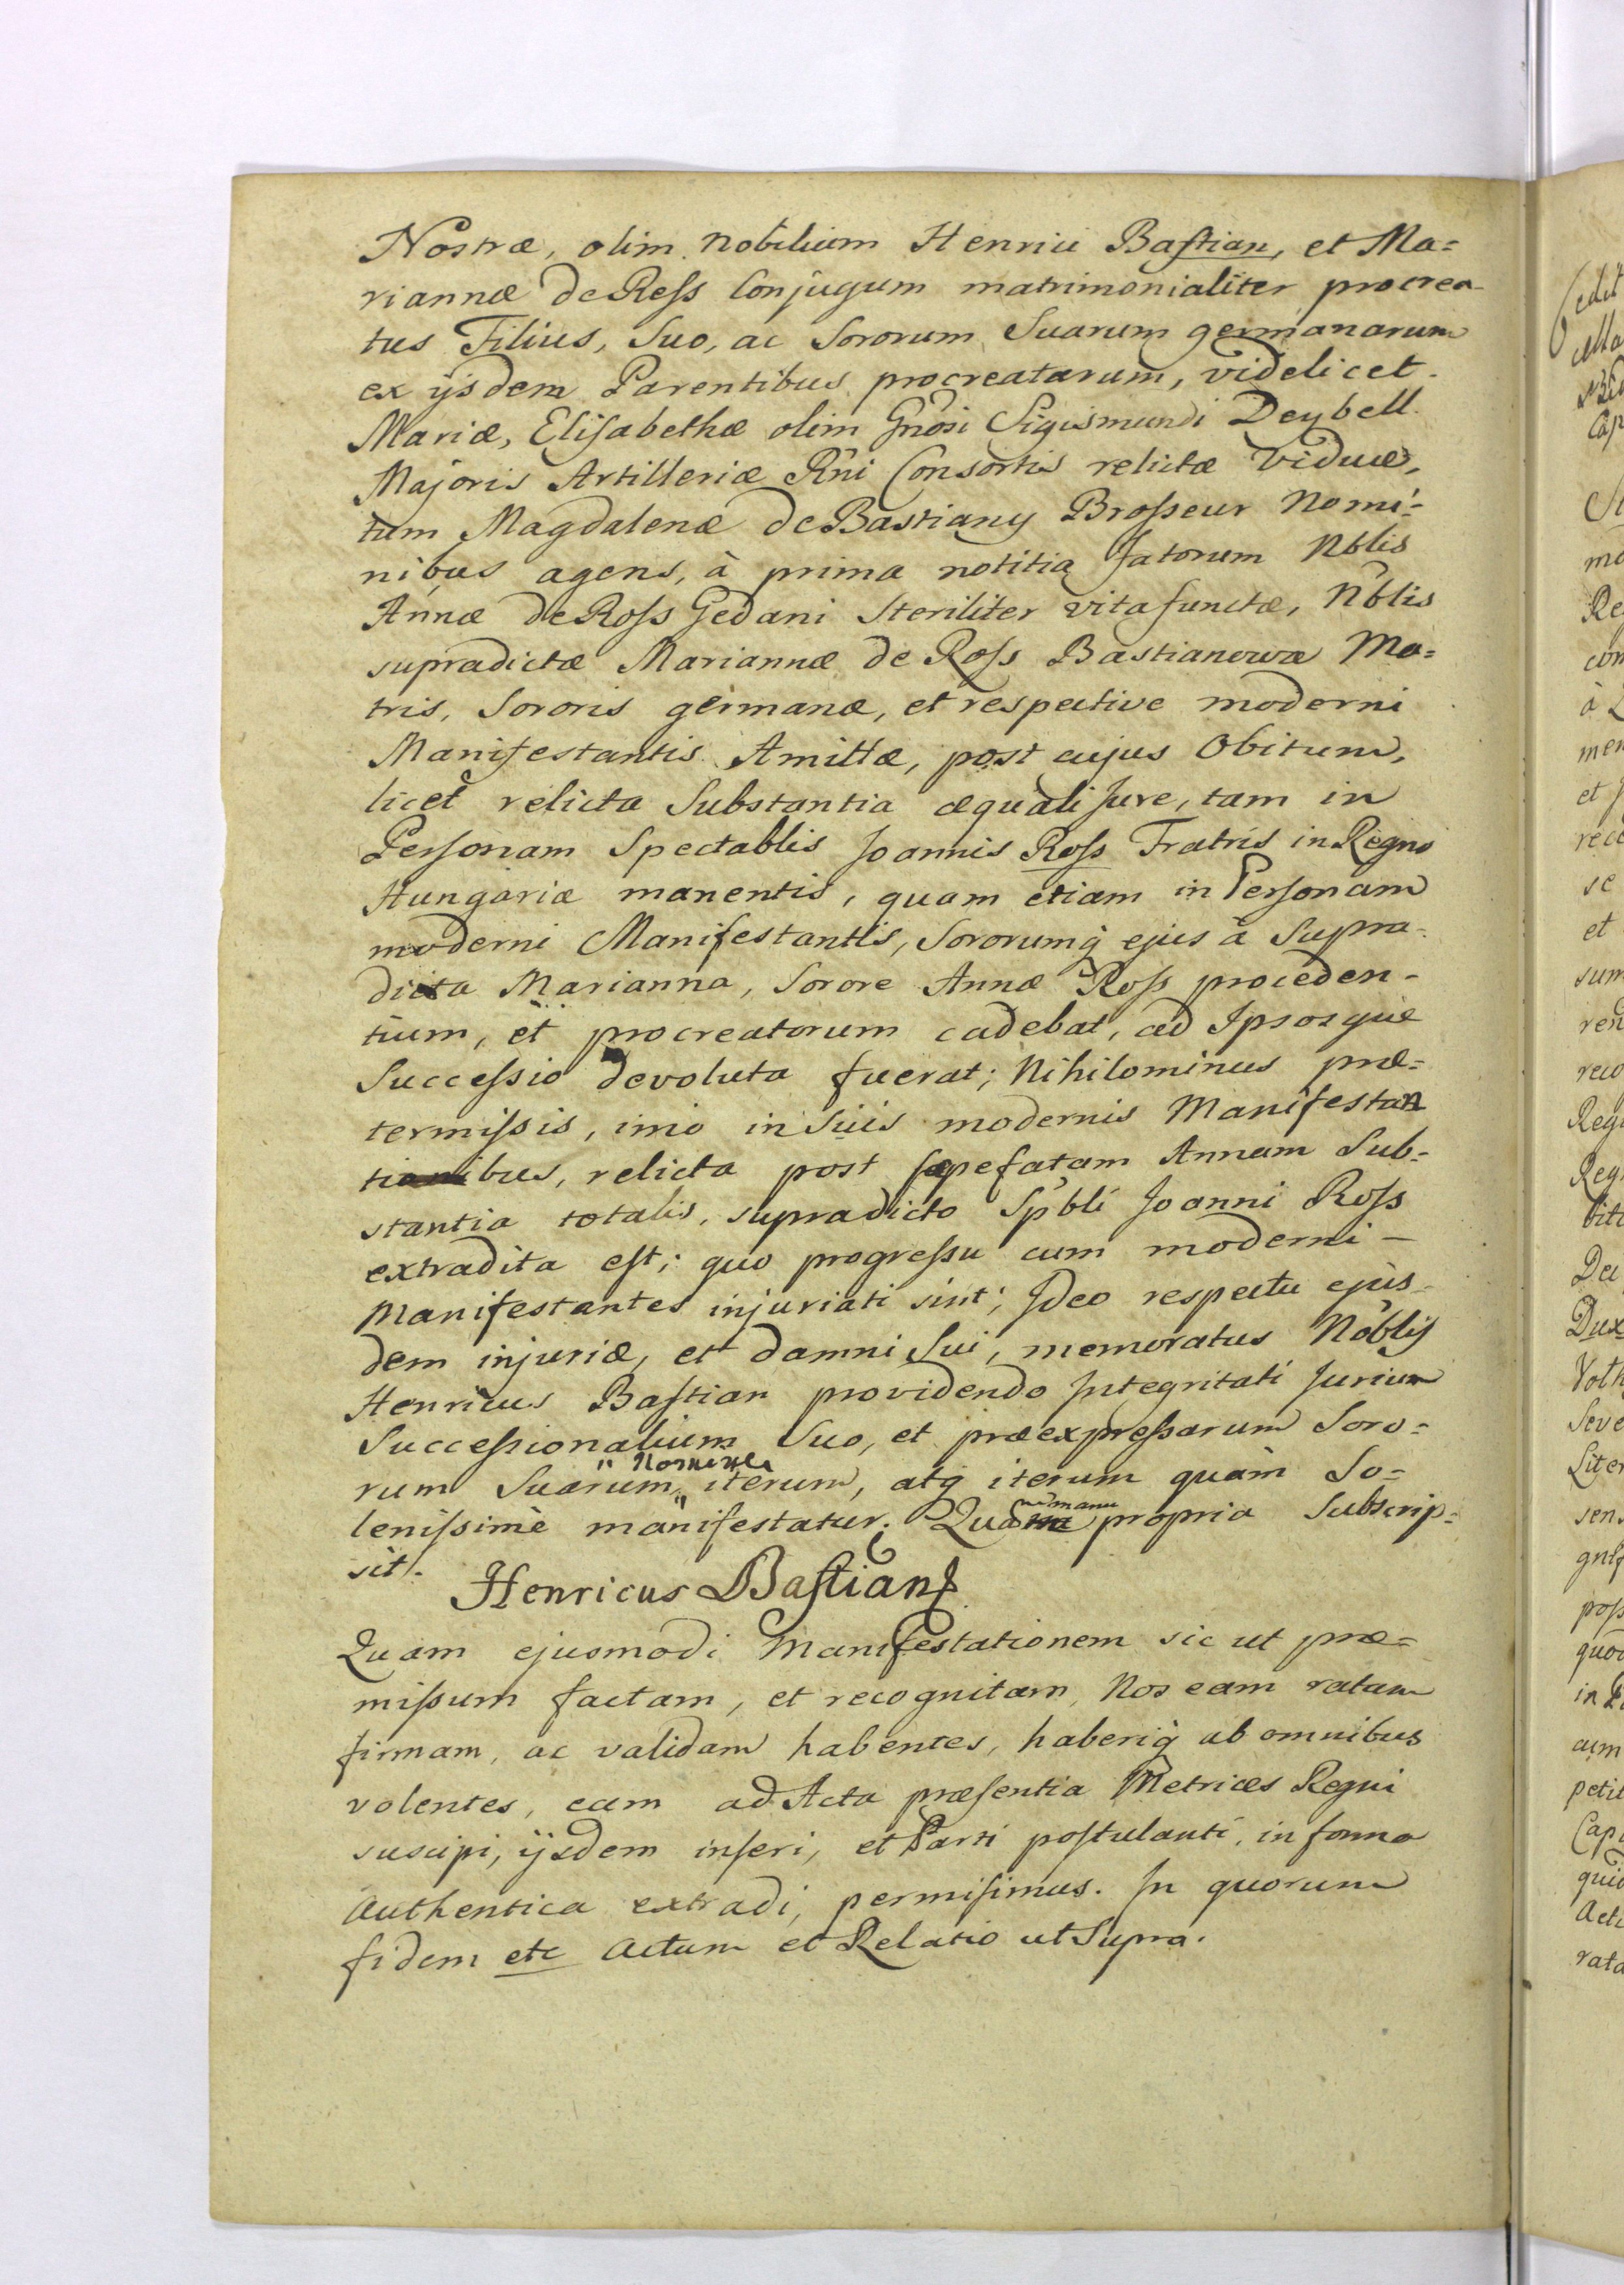 Nostræ, olim Nobilium Henrici Bastian, et Ma=
riannæ de Ross Conjugum matrimonialiter procrea-
tus Filius, Suo, ac Sororum Suarum germanarum
ex ijsdem Parentibus procreatarum, videlicet.
Mariæ, Elisabethæ olim Gnosi Sigismundi Deybell.
Majoris Artilleriæ Rni Consortis relictæ Viduæ,
tum Magdalenæ de Bastiany Brosseur Nomi=
nibus agens, à prima notitia Fatorum Nblis
Annæ de Ross Gedani Steriliter vita functæ, Nblis
supradictæ Mariannæ de Ross Bastianowæ Ma=
tris, Sororis germanæ, et respective moderni
Manifestantis Amittæ, post cujus Obitum,
licet relicta Substantia æquali Jure, tam in
Personam Spectablis Joannis Ross Fratris in Regno
Hungariæ manentis, quam etiam in Personam
moderni Manifestantis, Sororumq ejus à Supra-
dicta Marianna, Sorore Annæ Ross proceden-
tium, et procreatorum cadebat, ad Ipsosque
Successio devoluta fuerat; Nihilominus præ=
termissis, imo in Suis modernis Manifestan
tibus, relicta post sæpefatam Annam Sub=
stantia totalis, supradicto Spbli Joanni Ross
extradita est; quo progressu cum moderni -
Manifestantes injuriati sint; Ideo respectu ejus-
dem injuriæ, et damni Sui, memoratus Noblis
Henricus Bastian providendo Integritati Jurium
Successionalium Suo, et præexpressarum Soro=
rum Suarum " Nomine " iterum, atq iterum quàm So=
lenissimè manifestatur. Quam manu propria Subscrip=
sit.
Henricus Bastian
Quam ejusmodi Manifestationem sic ut præ=
missum factam, et recognitam, Nos eam ratam
firmam, ac validam habentes, haberiq ab omnibus
volentes, eam ad Acta præsentia Metrices Regni
suscipi, ijsdem inseri, et Parti postulanti, in forma
authentica extradi, permisimus. In quorum
fidem etc Actum et Relatio ut Supra.